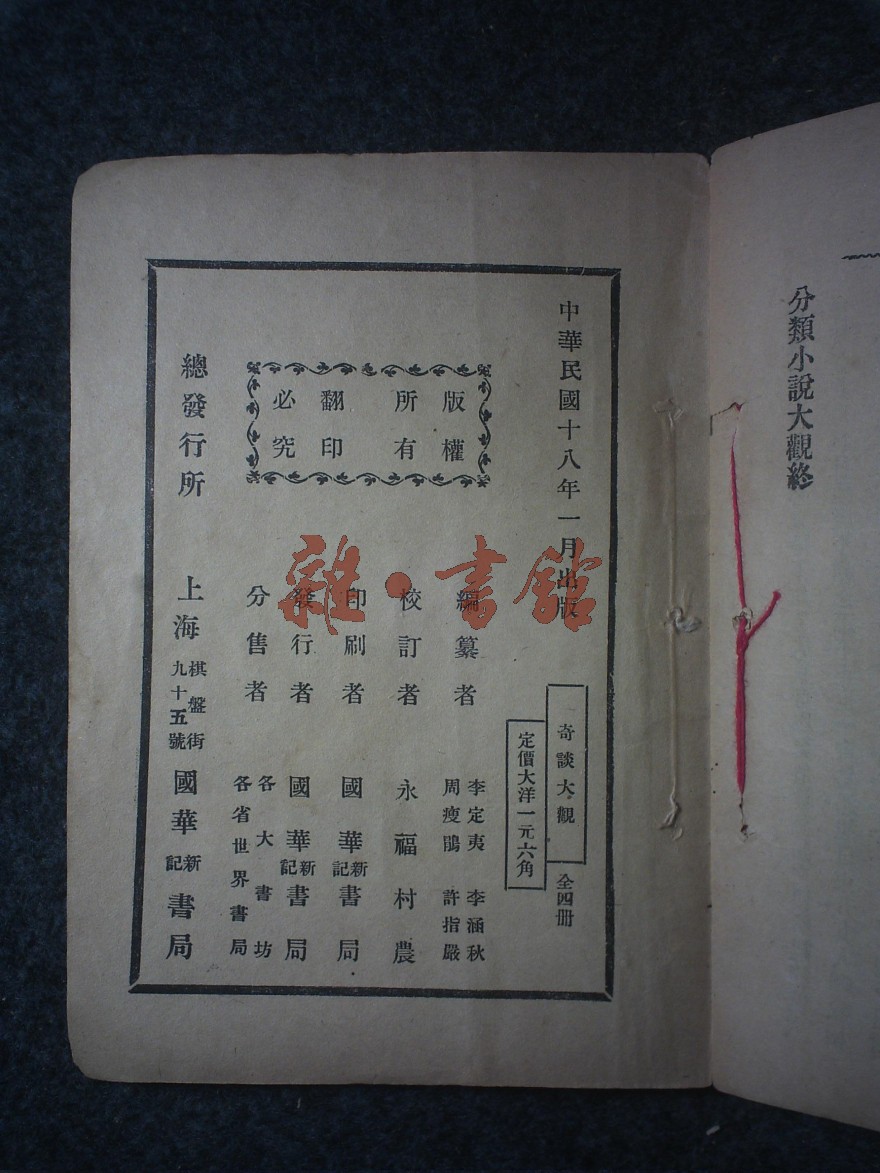 分類小說大觀終
中華民國十八年一月出版
奇談大觀
全四册
定價大洋一元六角
版權
所有
翻印
必究
編纂者
李定夷 李涵秋
周瘦鵑 許指嚴
校訂者 永福村農
印刷者 國華新記書局
發行者 國華新記書局
分售者
各大書坊
各省世界書局
總發行所 上海棋盤街九十五號 國華新記書局
雜·書館